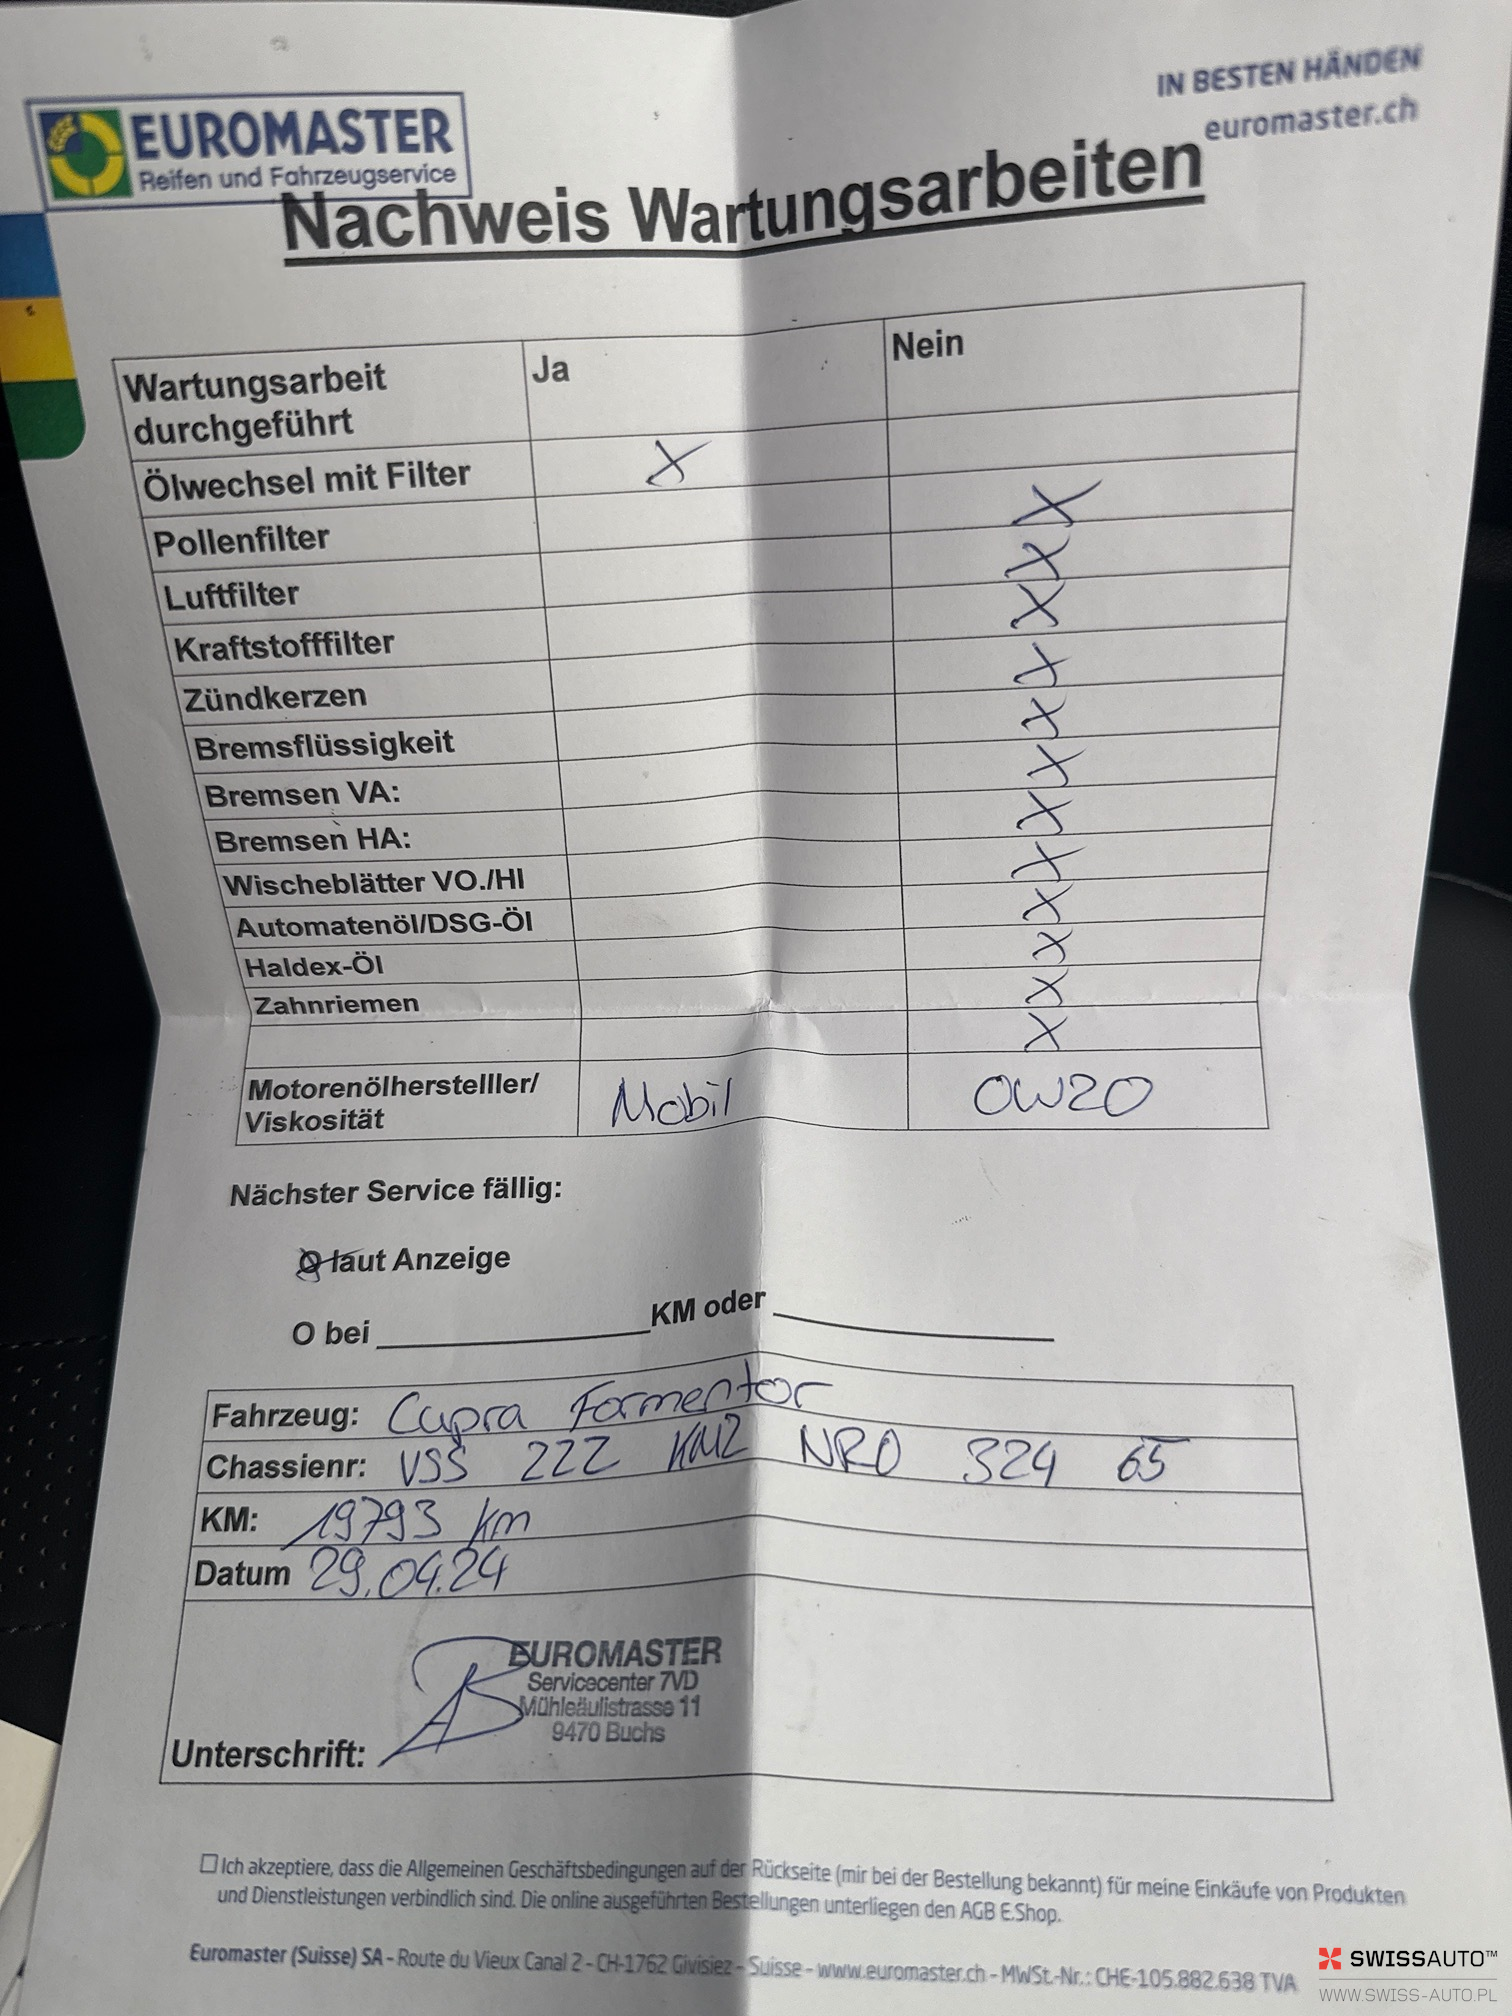 EUROMASTER
Reifen und Fahrzeugservice
IN BESTEN HÄNDEN
euromaster.ch
Nachweis Wartungsarbeiten
Wartungsarbeit durchgeführt Ja Nein
Ölwechsel mit Filter X
Pollenfilter X
Luftfilter X
Kraftstofffilter X
Zündkerzen X
Bremsflüssigkeit X
Bremsen VA: X
Bremsen HA: X
Wischeblätter VO./HI X
Automatenöl/DSG-Öl X
Haldex-Öl X
Zahnriemen X
X
Motorenölherstelller/ Mobil 0W20
Viskosität
Nächster Service fällig:
O laut Anzeige
O bei ____________ KM oder ____________
Fahrzeug: Cupra Formentor
Chassienr: VSS ZZZ KMZ NR0 324 65
KM: 19793 km
Datum 29.04.24
EUROMASTER
Servicecenter 7VD
Mühleäulistrasse 11
9470 Buchs
Unterschrift:
☐ Ich akzeptiere, dass die Allgemeinen Geschäftsbedingungen auf der Rückseite (mir bei der Bestellung bekannt) für meine Einkäufe von Produkten
und Dienstleistungen verbindlich sind. Die online ausgeführten Bestellungen unterliegen den AGB E.Shop.
Euromaster (Suisse) SA - Route du Vieux Canal 2 - CH-1762 Givisiez - Suisse - www.euromaster.ch - MWSt.-Nr.: CHE-105.882.638 TVA
SWISSAUTO™
WWW.SWISS-AUTO.PL